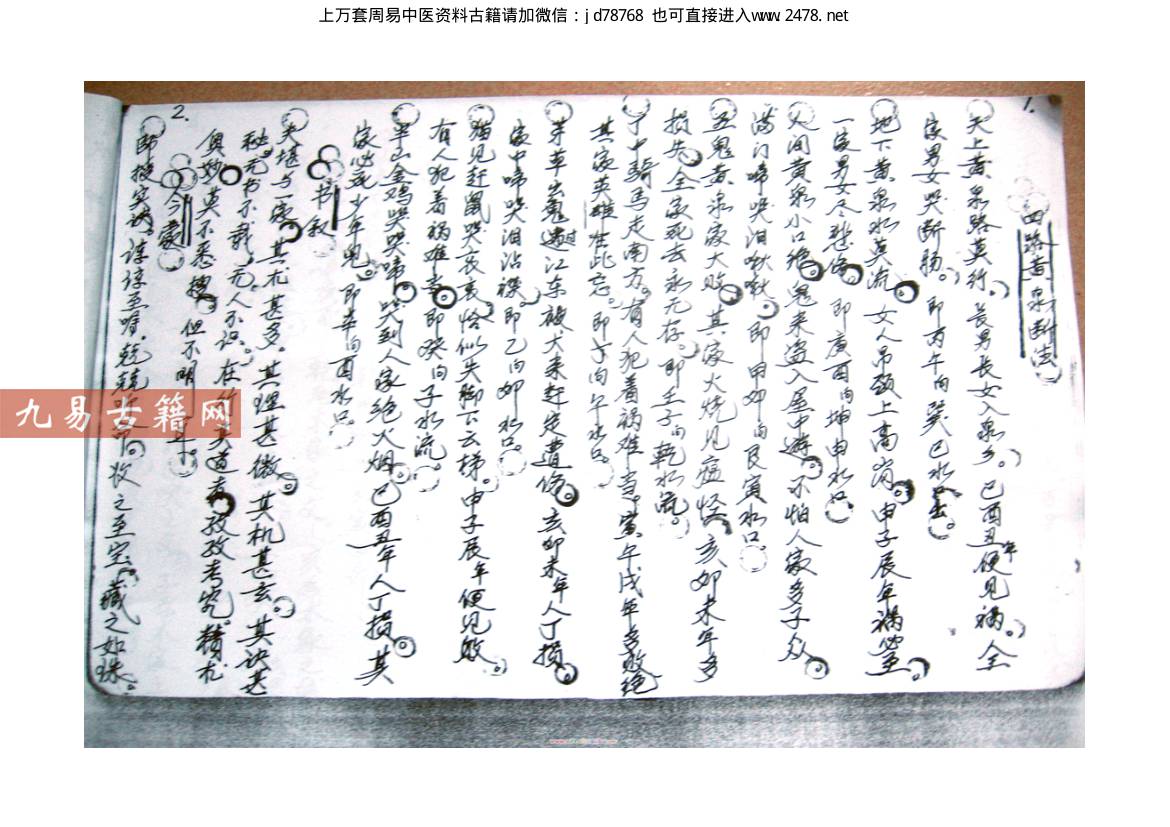 上万套周易中医资料古籍请加微信：jd78768 也可直接进入www.2478.net
1.
四路黄泉断法
天上黄泉路莫行。长男长女入泉乡。巳酉丑年便见祸。全
家男女哭断肠。即丙午向巽巳水出。
地下黄泉水莫流。女人吊颈上高岗。申子辰年祸必至。
一家男女尽悲伤。即庚酉向坤申水口。
人间黄泉小口绝。鬼来盗入屋中游。不怕人家多子众
满门啼哭泪啾啾。即甲卯向艮寅水口。
五鬼黄泉家大败。其家火烧见瘟怪。亥卯未年多
损失。全家死去永无存。即壬子向乾水流。
丁中骑马走南方。有人犯着祸难当。寅午戌年多败绝
其家夹难在此忘。即丁向午水口
牙草出鬼遇过江东被犬来赶定遭伤。亥卯未年人丁损。
家中啼哭泪沾襟。即乙向卯水口。
猫见赶鼠哭哀哀。恰似失脚下云梯。申子辰年便见败。
有人犯着祸难当。即癸向子水流。
半山金鸡哭哭啼。哭到人家绝火烟。巳酉丑年人丁损。其
家必死少年鬼。即辛向酉水口。
书叙
夫堪与一家。其尤甚多。其理甚微。其机甚玄。其诀甚
秘。无书不载。无人不识。在
道者孜孜考究。精札
奥妙莫不悉搜。但不明
2.
今
即授实诀。谆谆至嘱。
收之至宝。藏之如珠。
九易古籍网